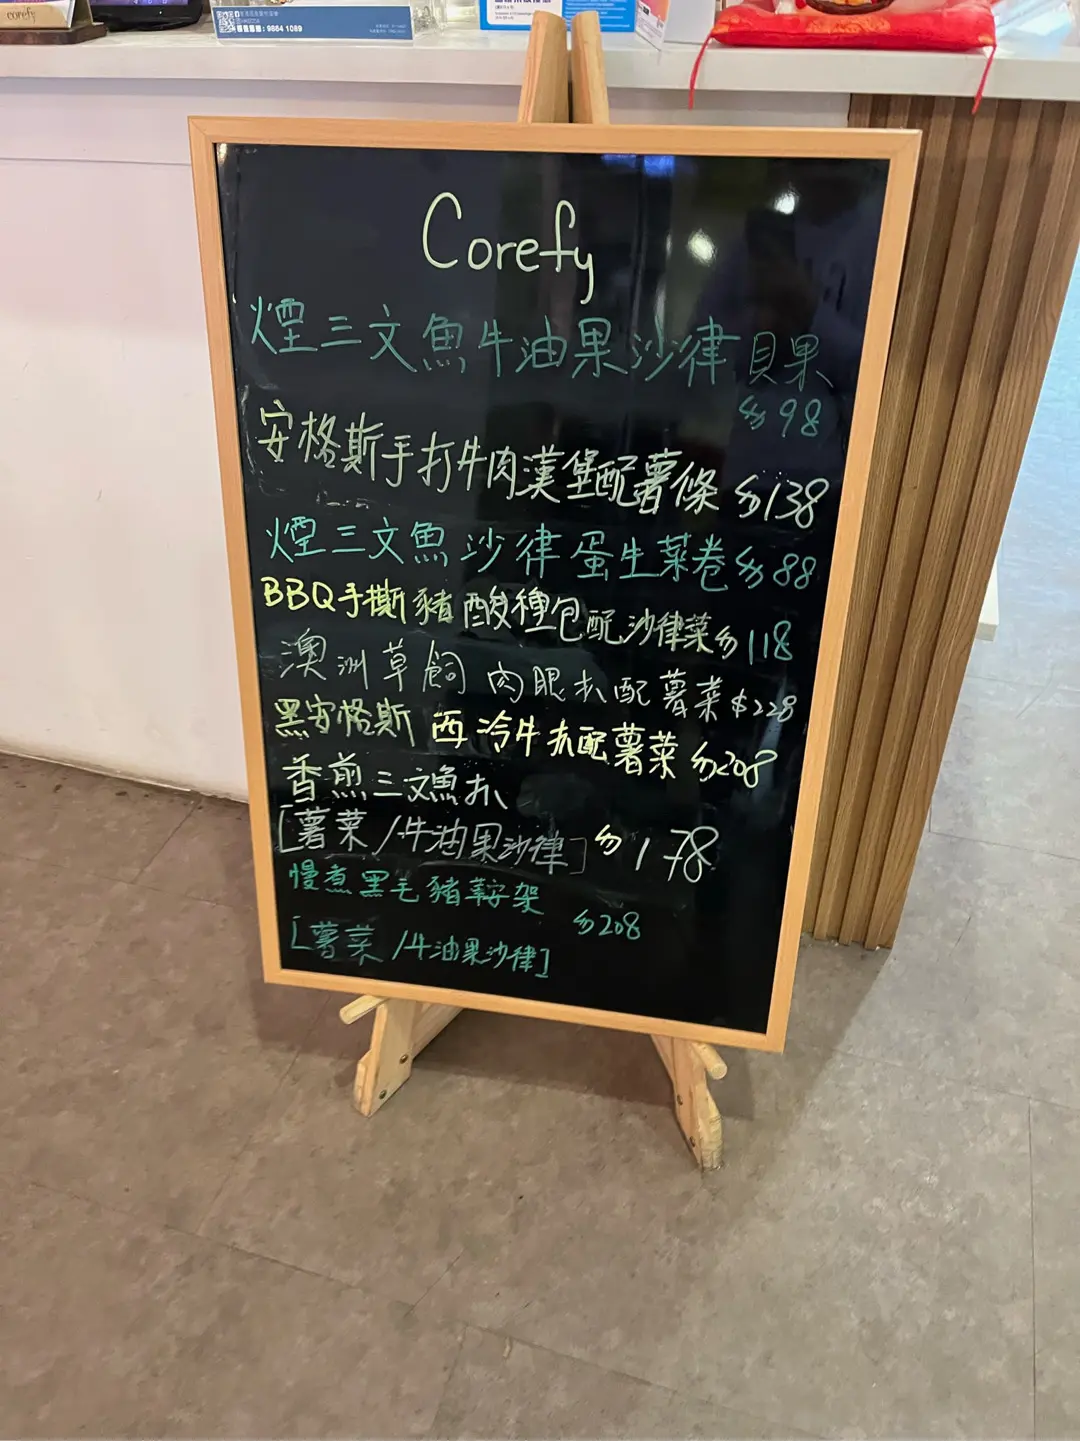 corefy
9864 1089
Corefy
煙三文魚牛油果沙律貝果
$98
安格斯手打牛肉漢堡配薯條 $138
煙三文魚沙律蛋生菜卷 $88
BBQ手撕豬酸種包配沙律菜 $118
澳洲草飼肉眼扒配薯菜 $228
黑安格斯西冷牛扒配薯菜 $208
香煎三文魚扒
[薯菜/牛油果沙律] $178
慢煮黑毛豬鞍架 $208
[薯菜/牛油果沙律]